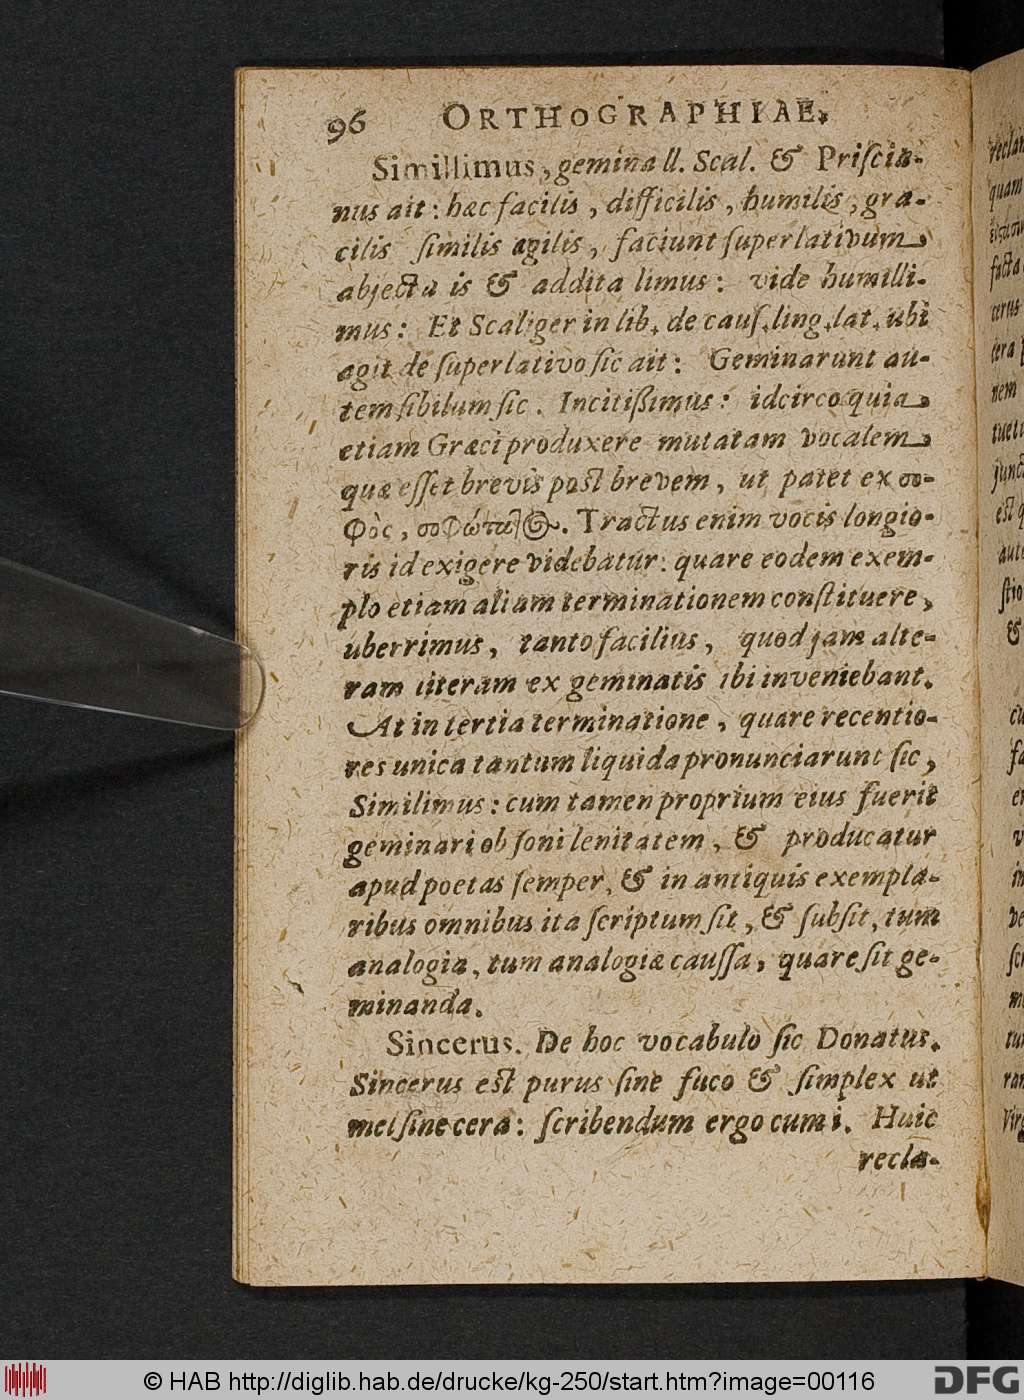 96 ORTHOGRAPHIAE.
Simillimus, gemina ll. Scal. & Priſcia-
nus ait: hæc facilis, difficilis, humilis, gra-
cilis ſimilis agilis, faciunt ſuperlativum,
abjecta is & addita limus: vide humilli-
mus: Et Scaliger in lib. de cauſ. ling. lat. ubi
agit de ſuperlativo ſic ait: Geminarunt au-
tem ſibilum ſic. Incitißimus: idcirco quia,
etiam Græci produxere mutatam vocalem,
quæ eſſet brevis poſt brevem, ut patet ex σο-
φὸς, σοφώτατος. Tractus enim vocis longio-
ris id exigere videbatur: quare eodem exem-
plo etiam aliam terminationem conſtituere,
uberrimus, tanto facilius, quod jam alte-
ram literam ex geminatis ibi inveniebant.
At in tertia terminatione, quare recentio-
res unica tantum liquida pronunciarunt ſic,
Similimus: cum tamen proprium eius fuerit
geminari ob ſoni lenitatem, & producatur
apud poetas ſemper, & in antiquis exempla-
ribus omnibus ita ſcriptum ſit, & ſubſit, tum
analogia, tum analogiæ cauſſa, quare ſit ge-
minanda.
Sincerus. De hoc vocabulo ſic Donatus.
Sincerus eſt purus ſine fuco & ſimplex ut
mel ſine cera: ſcribendum ergo cum i. Huic
recla-
© HAB http://diglib.hab.de/drucke/kg-250/start.htm?image=00116
DFG